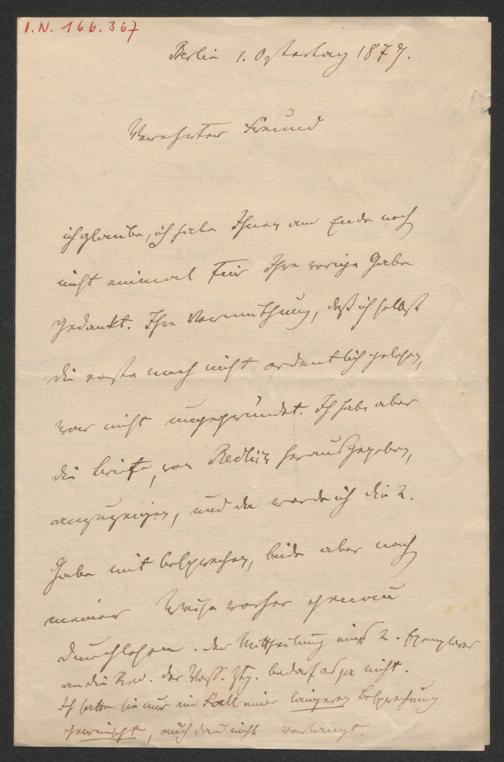 I.N. 166.367
Berlin 1. Ostertag 1877.
Verehrter Freund
ich glaube, ich habe Ihnen am Ende noch
nicht einmal für Ihre vorige Gabe
gedankt. Ihre Vermuthung, daß ich selbst
die erste noch nicht ordentlich gelesen,
war nicht ungegründet. Ich habe aber
die Briefe, von Redlich herausgegeben,
anzuzeigen, und da werde ich die 2.
Gabe mit besprechen, beide aber nach
meiner Weise vorher genau
durchlesen. Der Mittheilung eines 2. Exemplares
an die Red. der Voss. Ztg. bedarf es ja nicht.
Ich hatte sie nur im Fall einer längeren Besprechung
gewünscht, auch dann nicht verlangt.